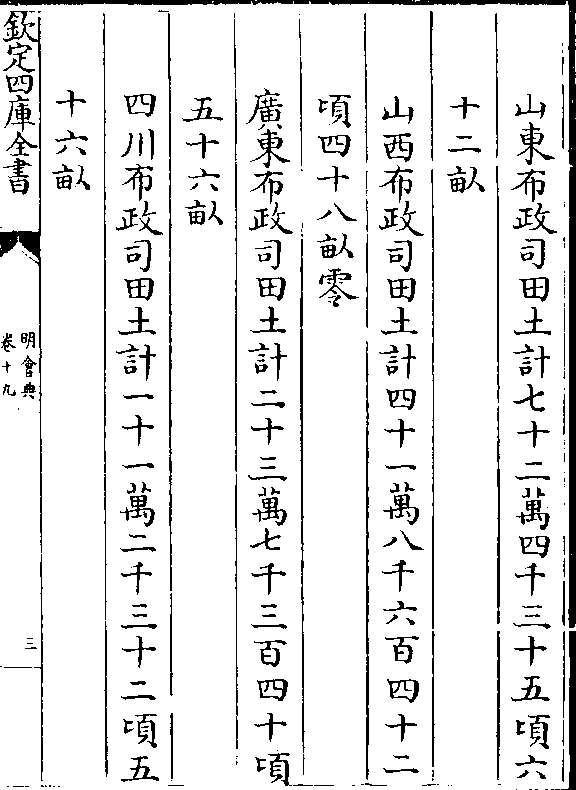 山東布政司田土計七十二萬四千三十五頃六
十二畝
山西布政司田土計四十一萬八千六百四十二
頃四十八畝零
廣東布政司田土計二十三萬七千三百四十頃
五十六畝
四川布政司田土計一十一萬二千三十二頃五
十六畝
欽定四庫全書
明會典
卷十九
三